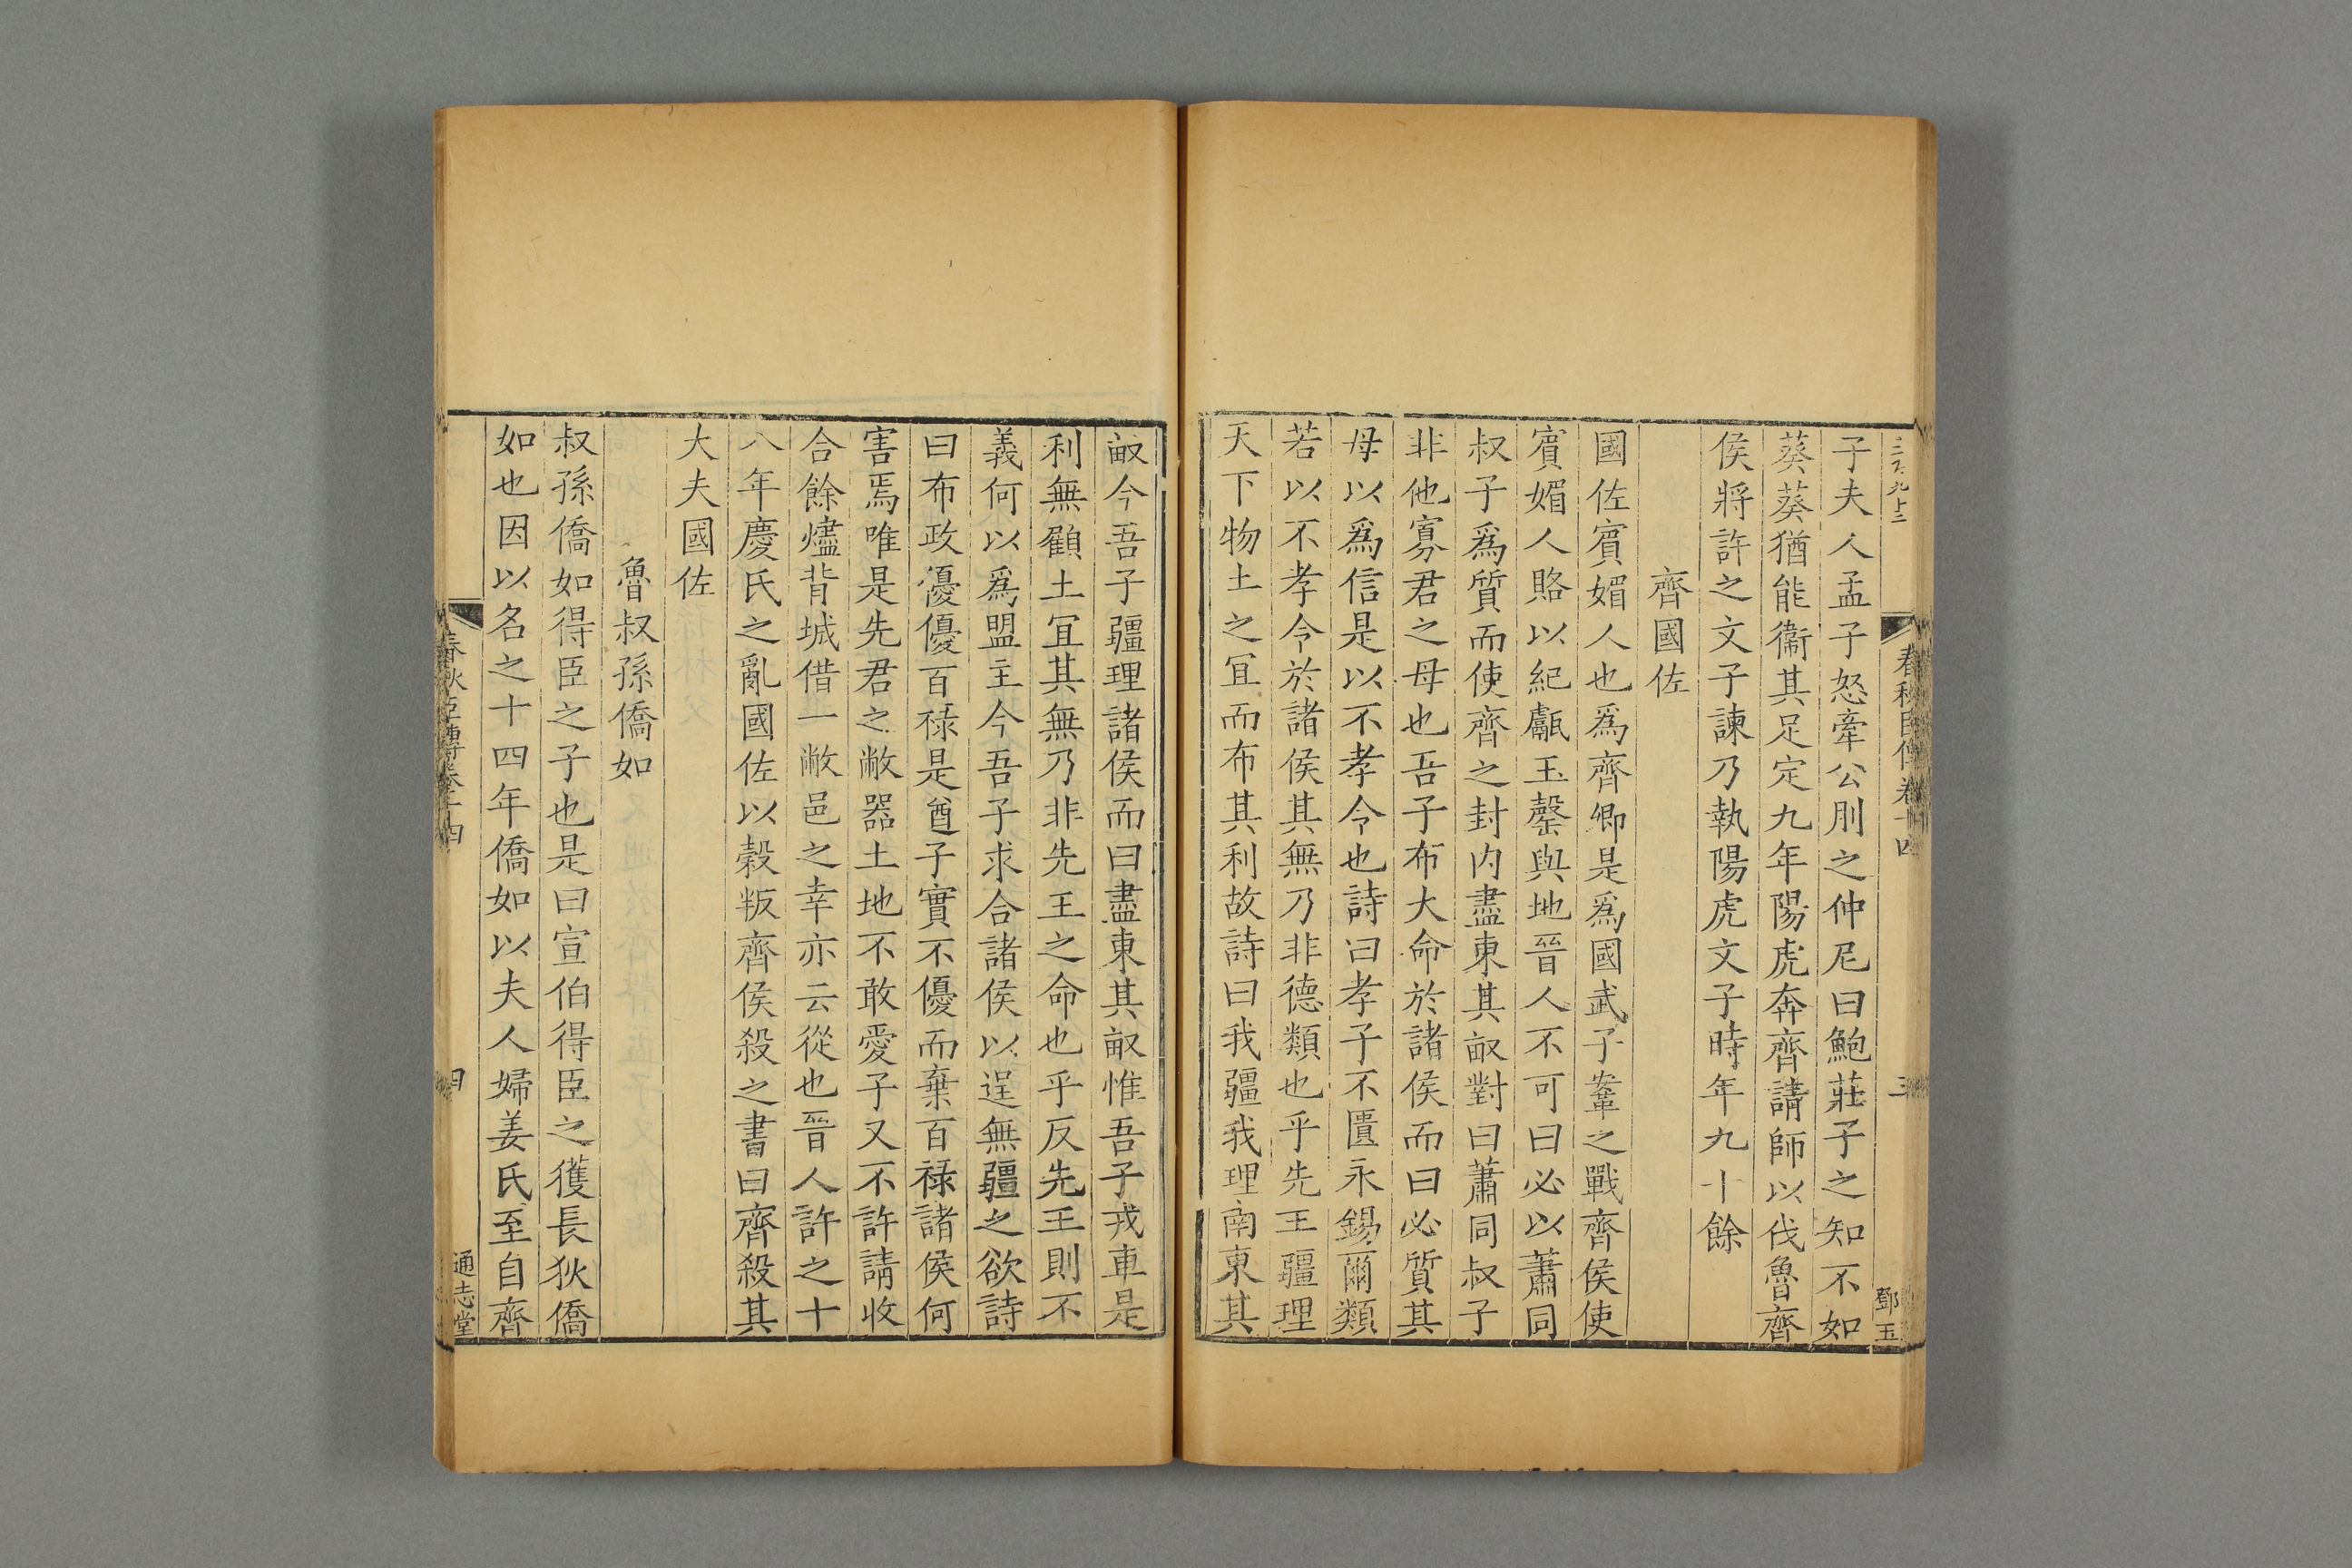 子夫人孟子怒牽公刖之仲尼曰鮑莊子之知不如
葵葵猶能衞其足定九年陽虎奔齊請師以伐魯齊
侯將許之文子諫乃執陽虎文子時年九十餘
齊國佐
國佐賔媚人也爲齊卿是爲國武子鞌之戰齊侯使
賔媚人賂以紀甗玉罄與地晉人不可曰必以蕭同
叔子爲質而使齊之封内盡東其畝對曰蕭同叔子
非他寡君之母也吾子布大命於諸侯而曰必質其
母以爲信是以不孝令也詩曰孝子不匱永錫爾類
若以不孝令於諸侯其無乃非德類也乎先王疆理
天下物土之冝而布其利故詩曰我疆我理南東其
畝今吾子疆理諸侯而曰盡東其畝惟吾子戎車是
利無顧土冝其無乃非先王之命也乎反先王則不
義何以爲盟主今吾子求合諸侯以逞無疆之欲詩
曰布政優優百祿是遒子實不優而棄百祿諸侯何
害焉唯是先君之敝器土地不敢愛子又不許請收
合餘燼背城借一敝邑之幸亦云從也晉人許之十
八年慶氏之亂國佐以榖叛齊侯殺之書曰齊殺其
大夫國佐
魯叔孫僑如
叔孫僑如得臣之子也是曰宣伯得臣之獲長狄僑
如也因以名之十四年僑如以夫人婦姜氏至自齊
春秋臣傳卷十四
三
鄧玉
春秋臣傳卷十四
四
通志堂